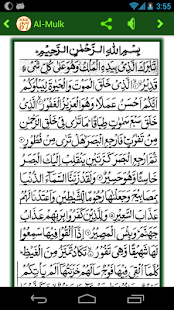 3:55
Al-Mulk
بِسْمِ اللّٰهِ الرَّحْمٰنِ الرَّحِيْمِ
تَبٰرَكَ الَّذِيْ بِيَدِهِ الْمُلْكُ وَهُوَ عَلٰى كُلِّ شَيْءٍ
قَدِيْرُ ۙ الَّذِيْ خَلَقَ الْمَوْتَ وَالْحَيٰوةَ لِيَبْلُوَكُمْ
اَيُّكُمْ اَحْسَنُ عَمَلًا ۗ وَهُوَ الْعَزِيْزُ الْغَفُوْرُ ۙ الَّذِيْ
خَلَقَ سَبْعَ سَمٰوٰتٍ طِبَاقًا ۗ مَا تَرٰى فِيْ خَلْقِ الرَّحْمٰنِ
مِنْ تَفٰوُتٍ ۗ فَارْجِعِ الْبَصَرَ ۙ هَلْ تَرٰى مِنْ فُطُوْرٍ
ثُمَّ ارْجِعِ الْبَصَرَ كَرَّتَيْنِ يَنْقَلِبْ اِلَيْكَ الْبَصَرُ
خَاسِئًا وَّهُوَ حَسِيْرٌ وَلَقَدْ زَيَّنَّا السَّمَآءَ الدُّنْيَا
بِمَصَابِيْحَ وَجَعَلْنٰهَا رُجُوْمًا لِّلشَّيٰطِيْنِ وَاَعْتَدْنَا لَهُمْ
عَذَابَ السَّعِيْرِ وَلِلَّذِيْنَ كَفَرُوْا بِرَبِّهِمْ عَذَابُ
جَهَنَّمَ ۗ وَبِئْسَ الْمَصِيْرُ اِذَآ اُلْقُوْا فِيْهَا سَمِعُوْا
لَهَا شَهِيْقًا وَّهِيَ تَفُوْرُ ۙ تَكَادُ تَمَيَّزُ مِنَ الْغَيْظِ
كُلَّمَآ اُلْقِيَ فِيْهَا فَوْجٌ سَاَلَهُمْ خَزَنَتُهَآ اَلَمْ يَاْتِكُمْ